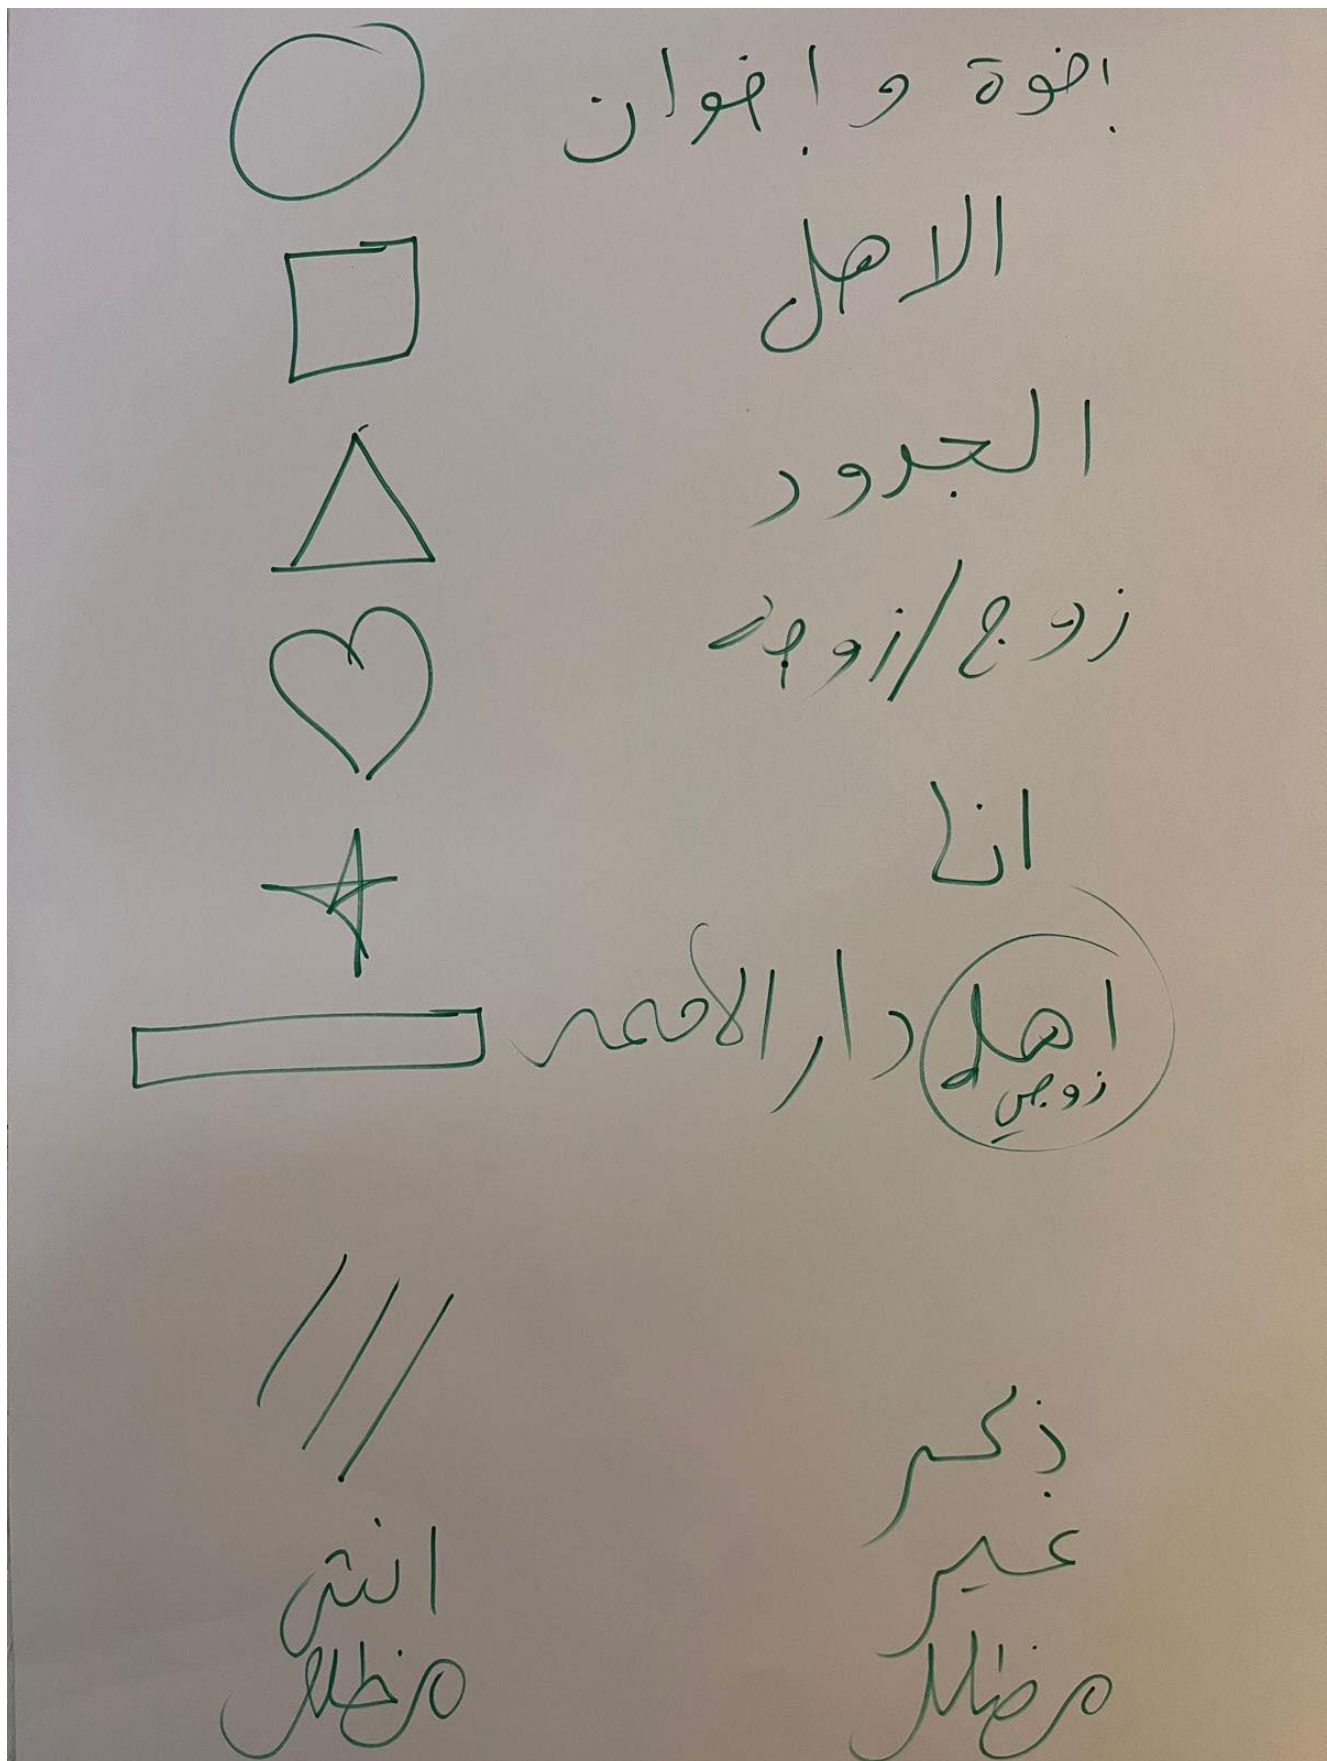 اخوة و اخوان
الاهل
الجدود
زوج/زوجة
انا
اهل دار الأحمه
زوجي
ذكر
غير
مظلل
انثى
مظلل